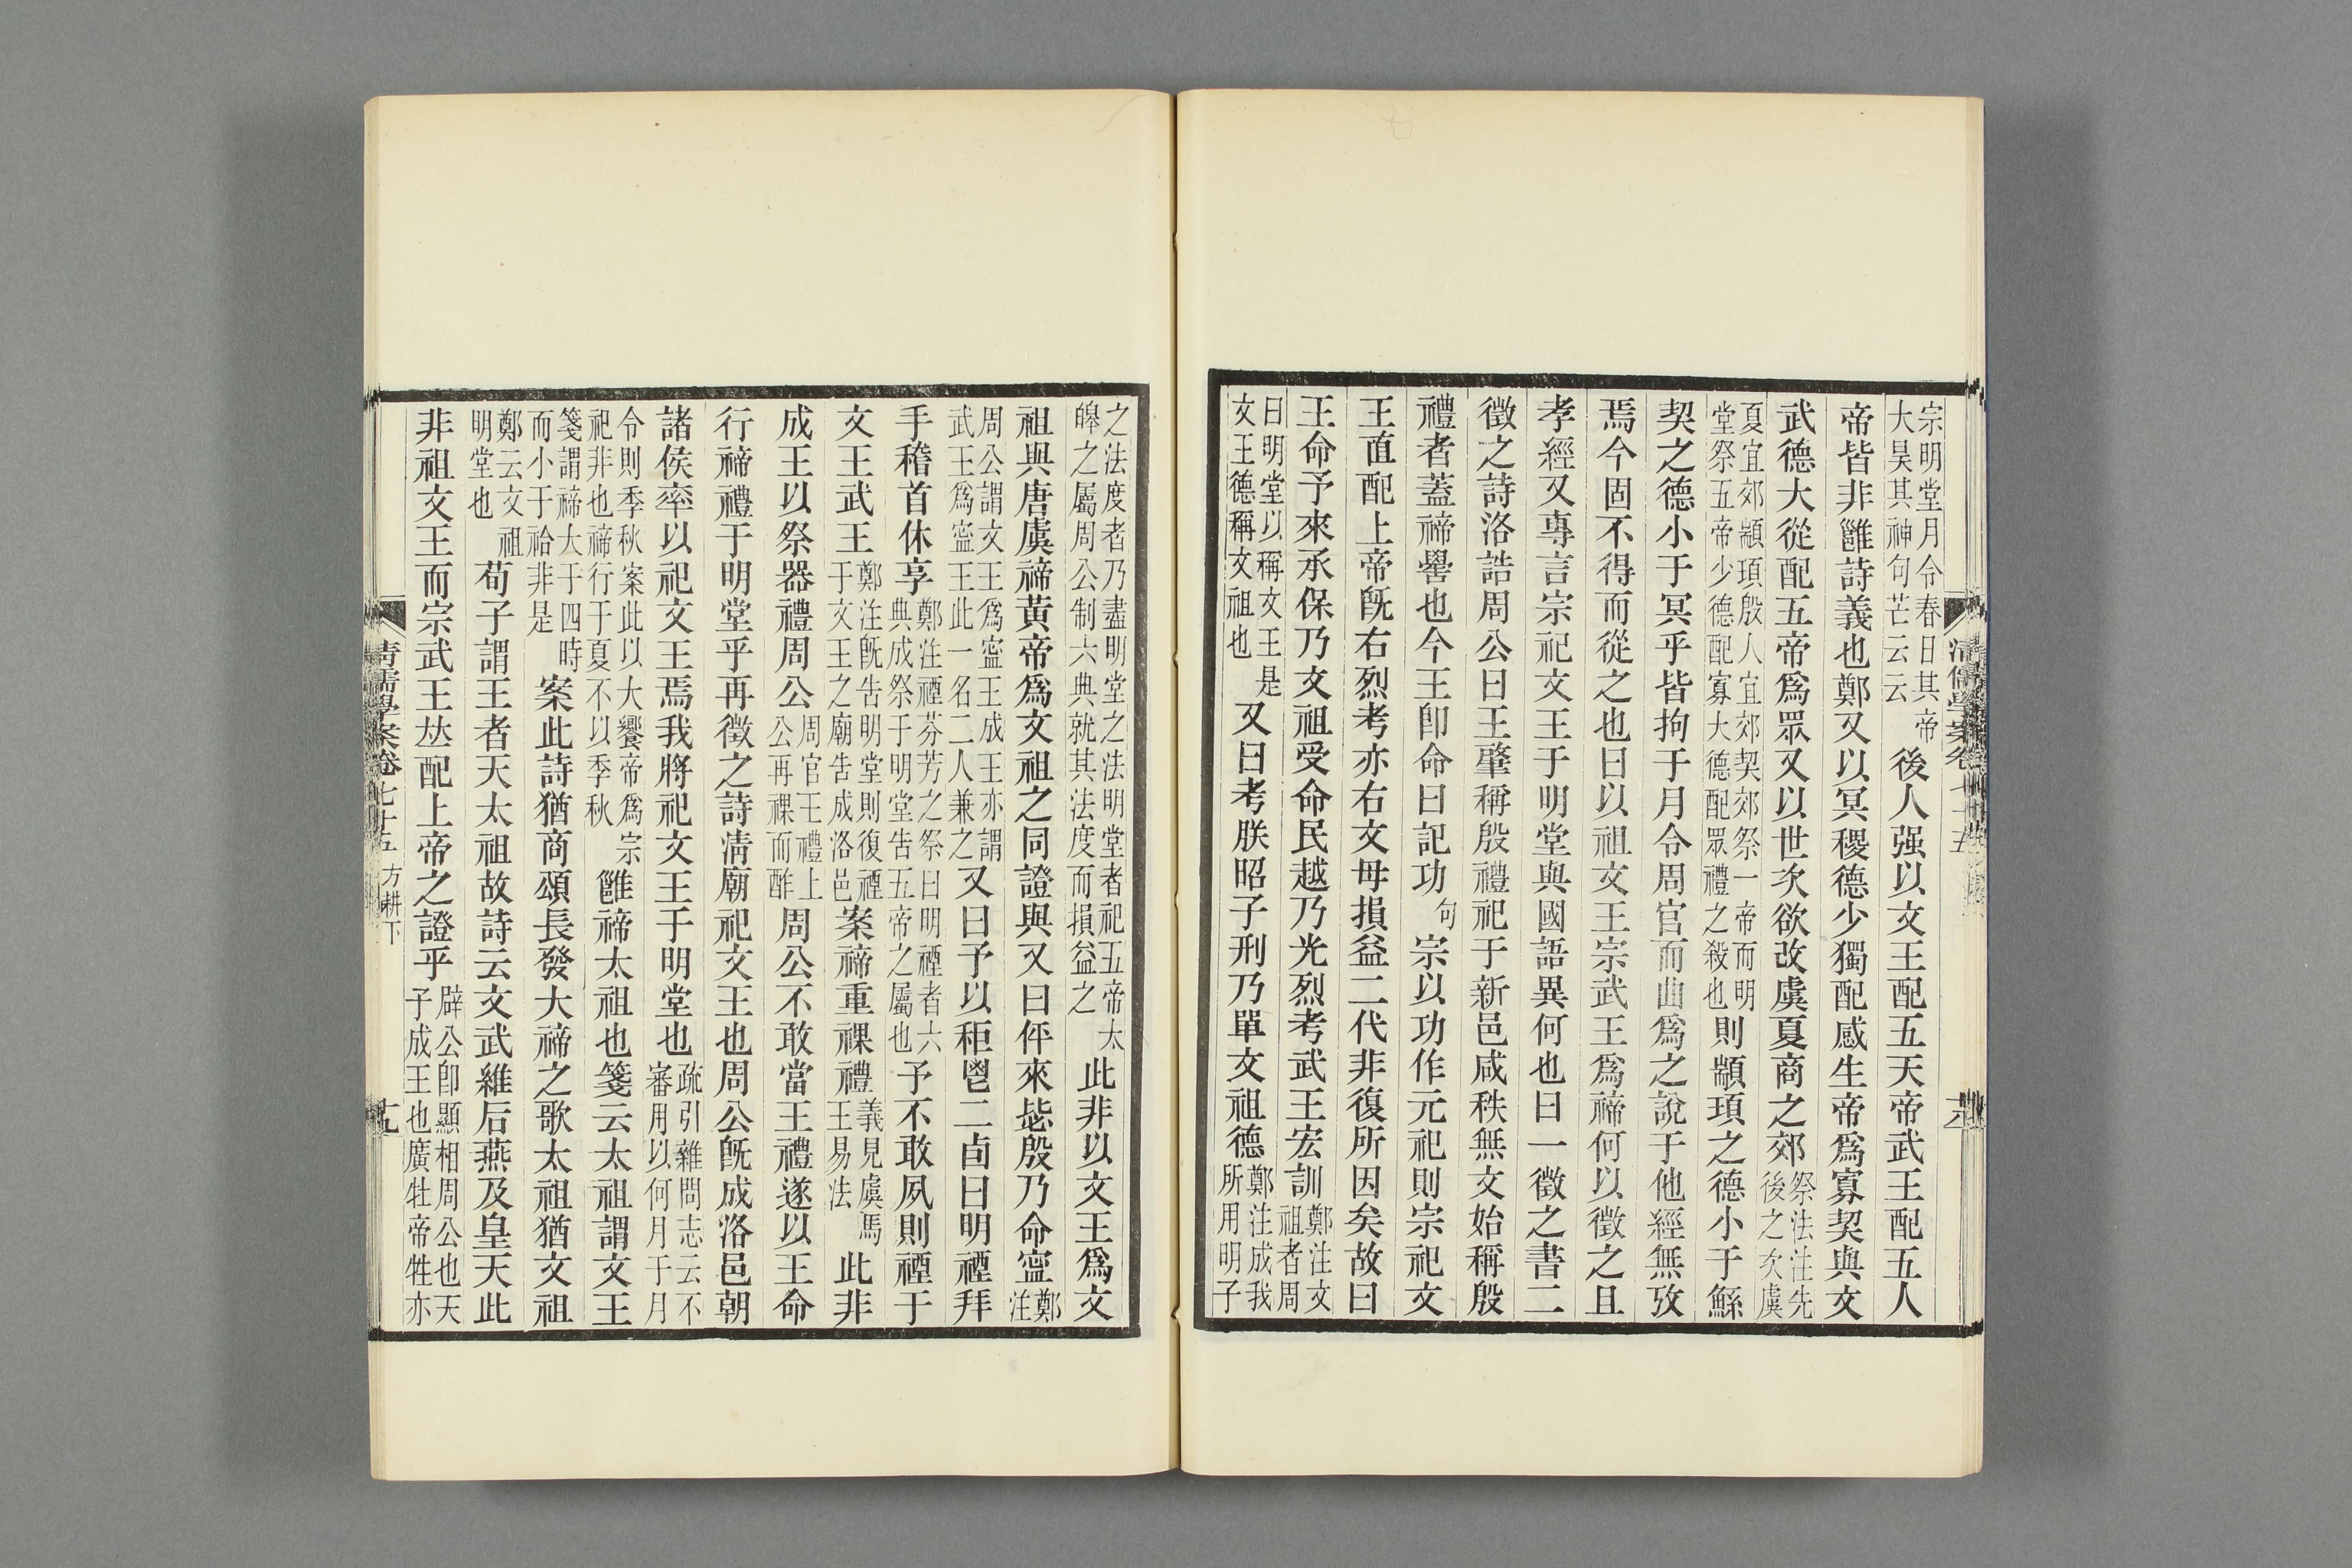 宗明堂月令春日其帝大昊其神句芒云云後人强以文王配五天帝武王配五人
帝皆非雝詩義也鄭又以冥稷德少獨配感生帝爲寡契與文
武德大從配五帝爲眾又以世次欲改虞夏商之郊祭法注先後之次虞
夏宜郊顓頊殷人宜郊契郊祭一帝而明堂祭五帝少德配寡大德配眾禮之殺也則顓頊之德小于鯀
契之德小于冥乎皆拘于月令周官而曲爲之說于他經無攷
焉今固不得而從之也曰以祖文王宗武王爲禘何以徵之且
孝經又專言宗祀文王于明堂與國語異何也曰一徵之書二
徵之詩洛誥周公曰王肇稱殷禮祀于新邑咸秩無文始稱殷
禮者蓋禘嚳也今王卽命曰記功句宗以功作元祀則宗祀文
王直配上帝旣右烈考亦右文母損益二代非復所因矣故曰
王命予來承保乃文祖受命民越乃光烈考武王宏訓鄭注文祖者周
曰明堂以稱文王是文王德稱文祖也又曰考朕昭子刑乃單文祖德鄭注成我所用明子
之法度者乃盡明堂之法明堂者祀五帝太皞之屬周公制六典就其法度而損益之此非以文王爲文
祖與唐虞禘黃帝爲文祖之同證與又曰伻來毖殷乃命寍鄭注
周公謂文王爲寍王成王亦謂武王爲寍王此一名二人兼之又曰予以秬鬯二卣曰明禋拜
手稽首休享鄭注禋芬芳之祭曰明禋者六典成祭于明堂告五帝之屬也予不敢夙則禋于
文王武王鄭注旣告明堂則復禋于文王之廟告成洛邑案禘重祼禮義見虞馬王易法此非
成王以祭器禮周公周官王禮上公再祼而酢周公不敢當王禮遂以王命
行禘禮于明堂乎再徵之詩清廟祀文王也周公旣成洛邑朝
諸侯率以祀文王焉我將祀文王于明堂也疏引雜問志云不審用以何月于月
令則季秋案此以大饗帝爲宗祀非也禘行于夏不以季秋雝禘太祖也箋云太祖謂文王
箋謂禘大于四時而小于祫非是案此詩猶商頌長發大禘之歌太祖猶文祖
鄭云文祖明堂也荀子謂王者天太祖故詩云文武維后燕及皇天此
非祖文王而宗武王𠀤配上帝之證乎辟公卽顯相周公也天子成王也廣牡帝牲亦
清儒學案卷七十五 方耕下 十九